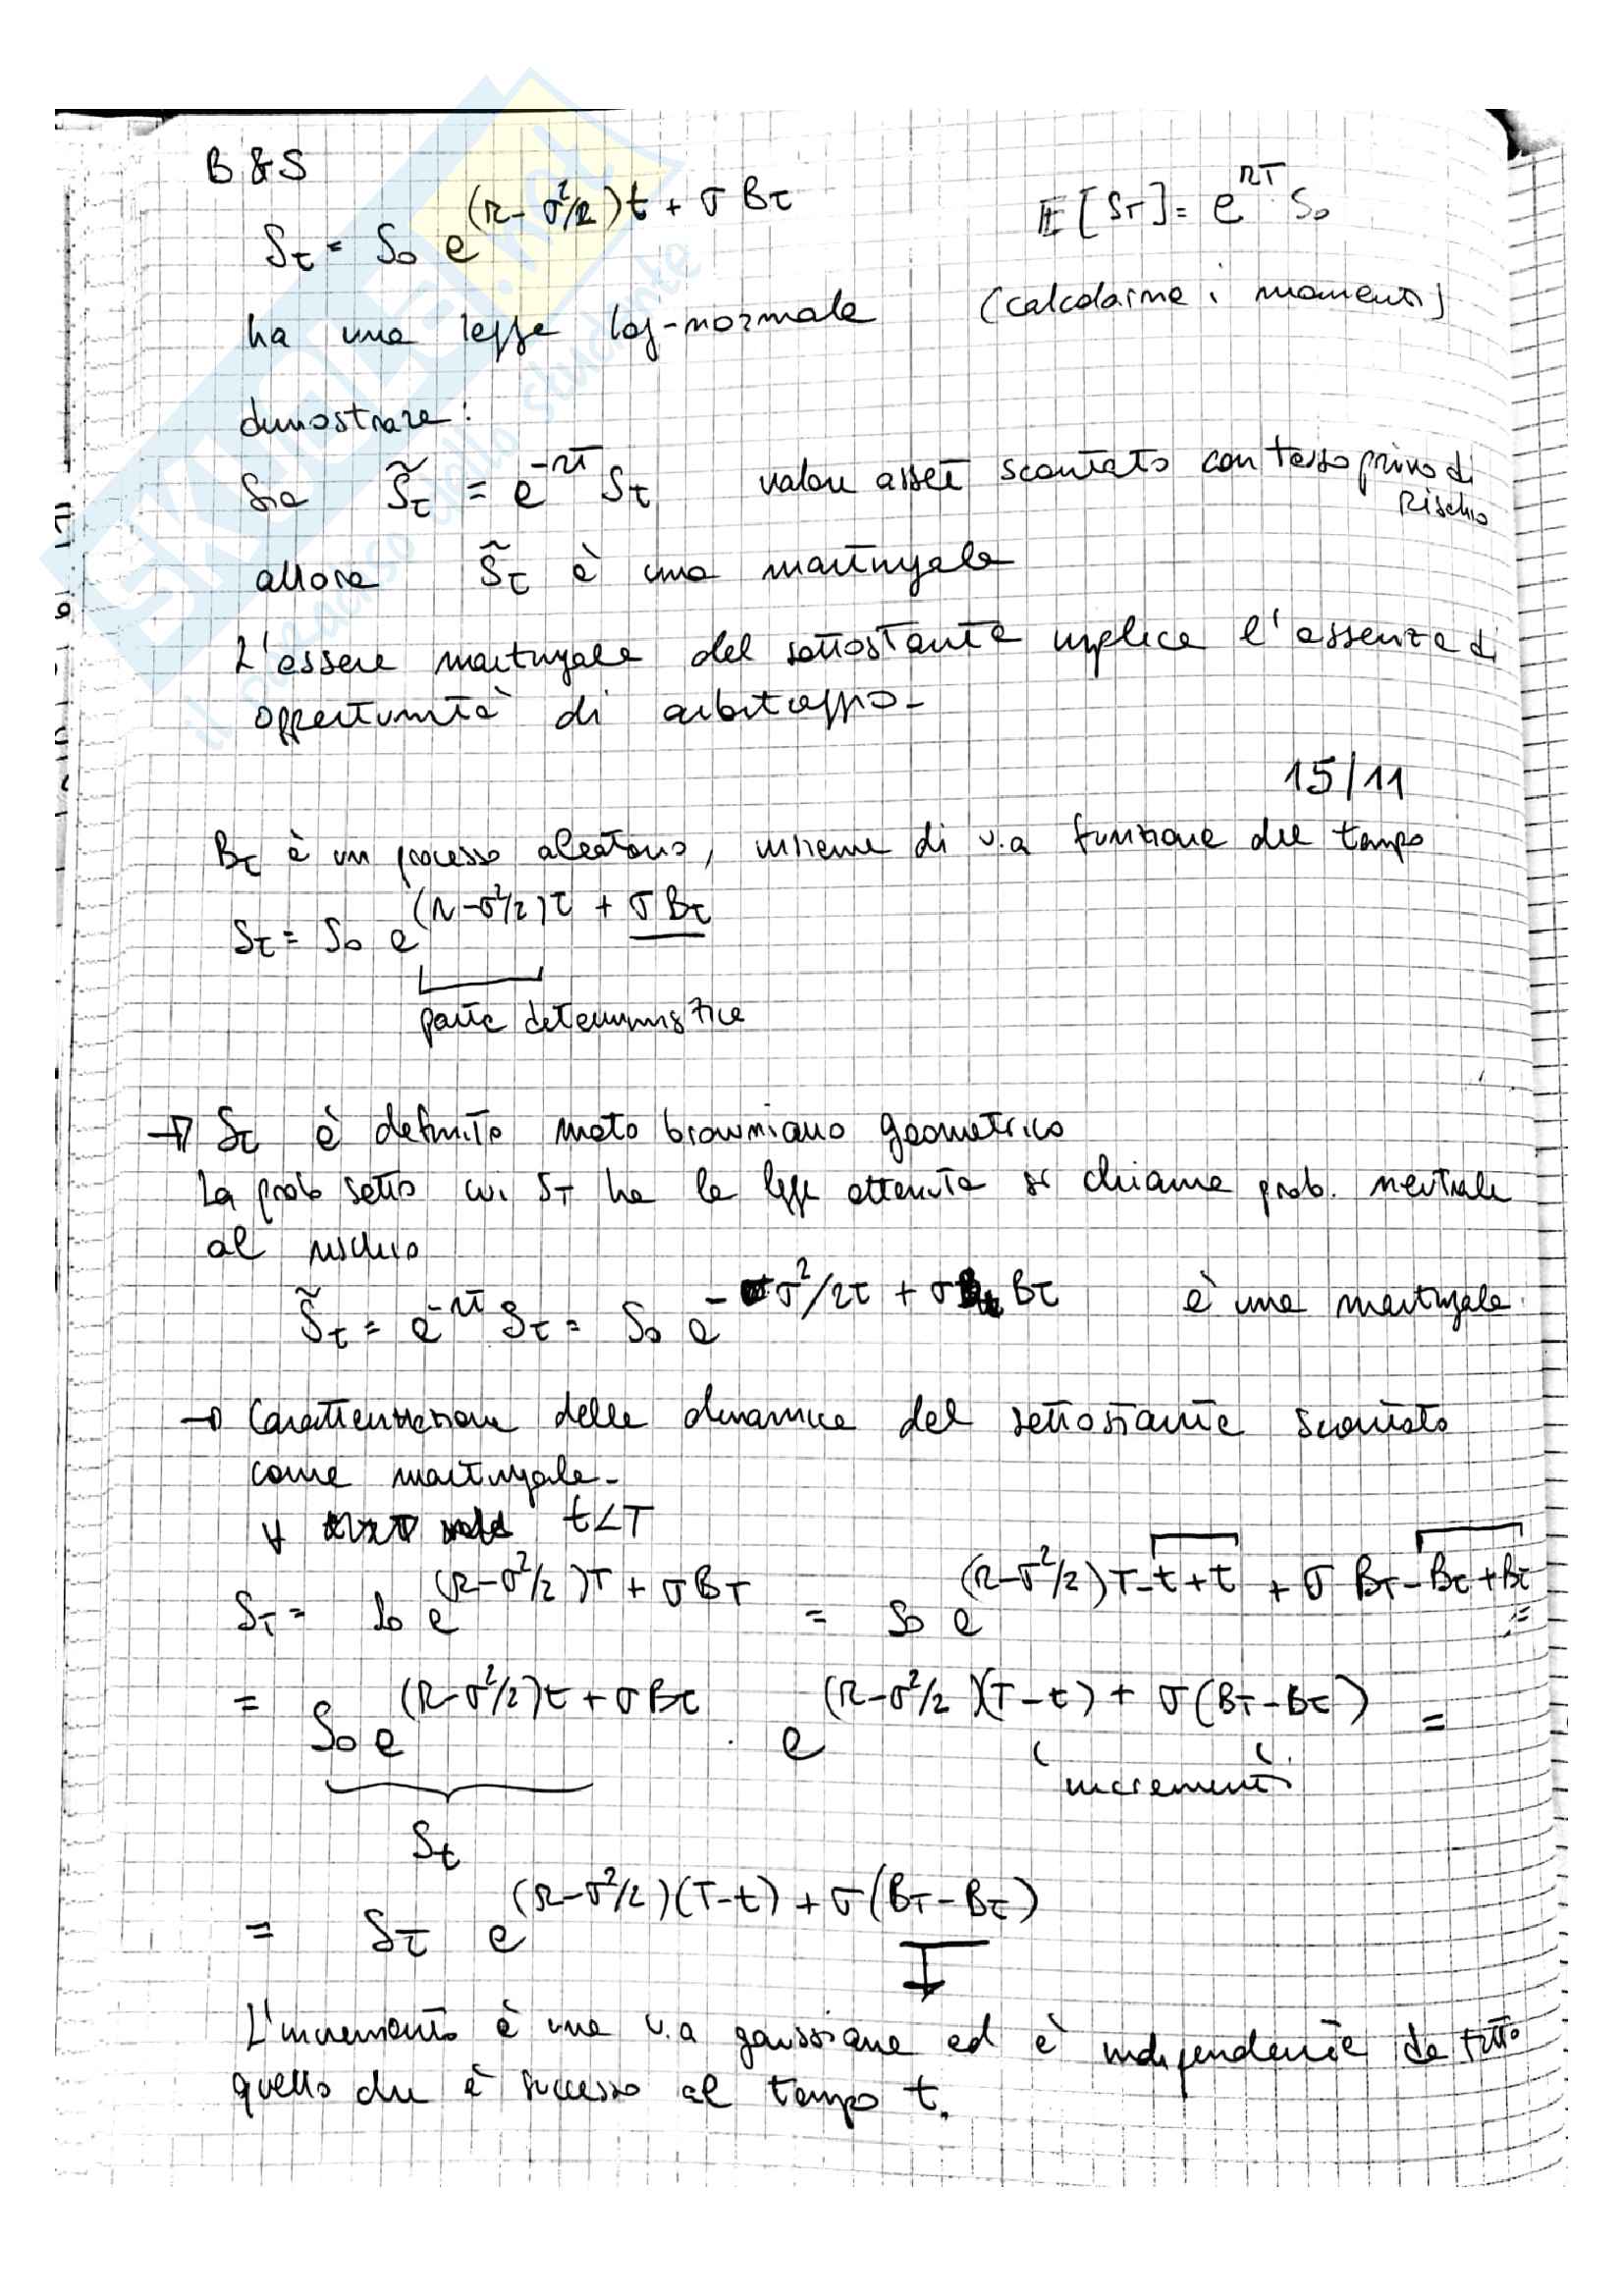 B & S
S_t = S_0 e^{(r-σ²/2)t + σB_t}    E[S_T] = e^{rT} S_0
ha una legge log-normale (calcolarne i momenti)
dimostrare:
Sia S̃_t = e^{-rt} S_t valore asset scontato con tasso privo di
rischio
allora S̃_t è una martingala
L'essere martingala del sottostante implica l'assenza di
opportunità di arbitraggio-
15/11
B_t è un processo aleatorio, insieme di v.a funzione del tempo
S_t = S_0 e^{(r-σ²/2)t + σB_t}
parte deterministica
→ S_t è definito moto browniano geometrico
La prob sotto cui S_T ha la legge ottenuta si chiama prob. neutrale
al rischio
S̃_t = e^{-rt} S_t = S_0 e^{-σ²/2t + σB_t} è una martingala.
→ Caratterizzazione della dinamica del sottostante scontato
come martingala-
∀ t<T
S_T = S_0 e^{(r-σ²/2)T + σB_T} = S_0 e^{(r-σ²/2)T-t+t + σB_T-B_t+B_t} =
= S_0 e^{(r-σ²/2)t + σB_t} · e^{(r-σ²/2)(T-t) + σ(B_T-B_t)} =
incrementi
S_t
= S_t e^{(r-σ²/2)(T-t) + σ(B_T-B_t)}
L'incremento è una v.a gaussiana ed è indipendente da tutto
quello che è successo al tempo t.
SKUOLA.net
il paradiso dello studente